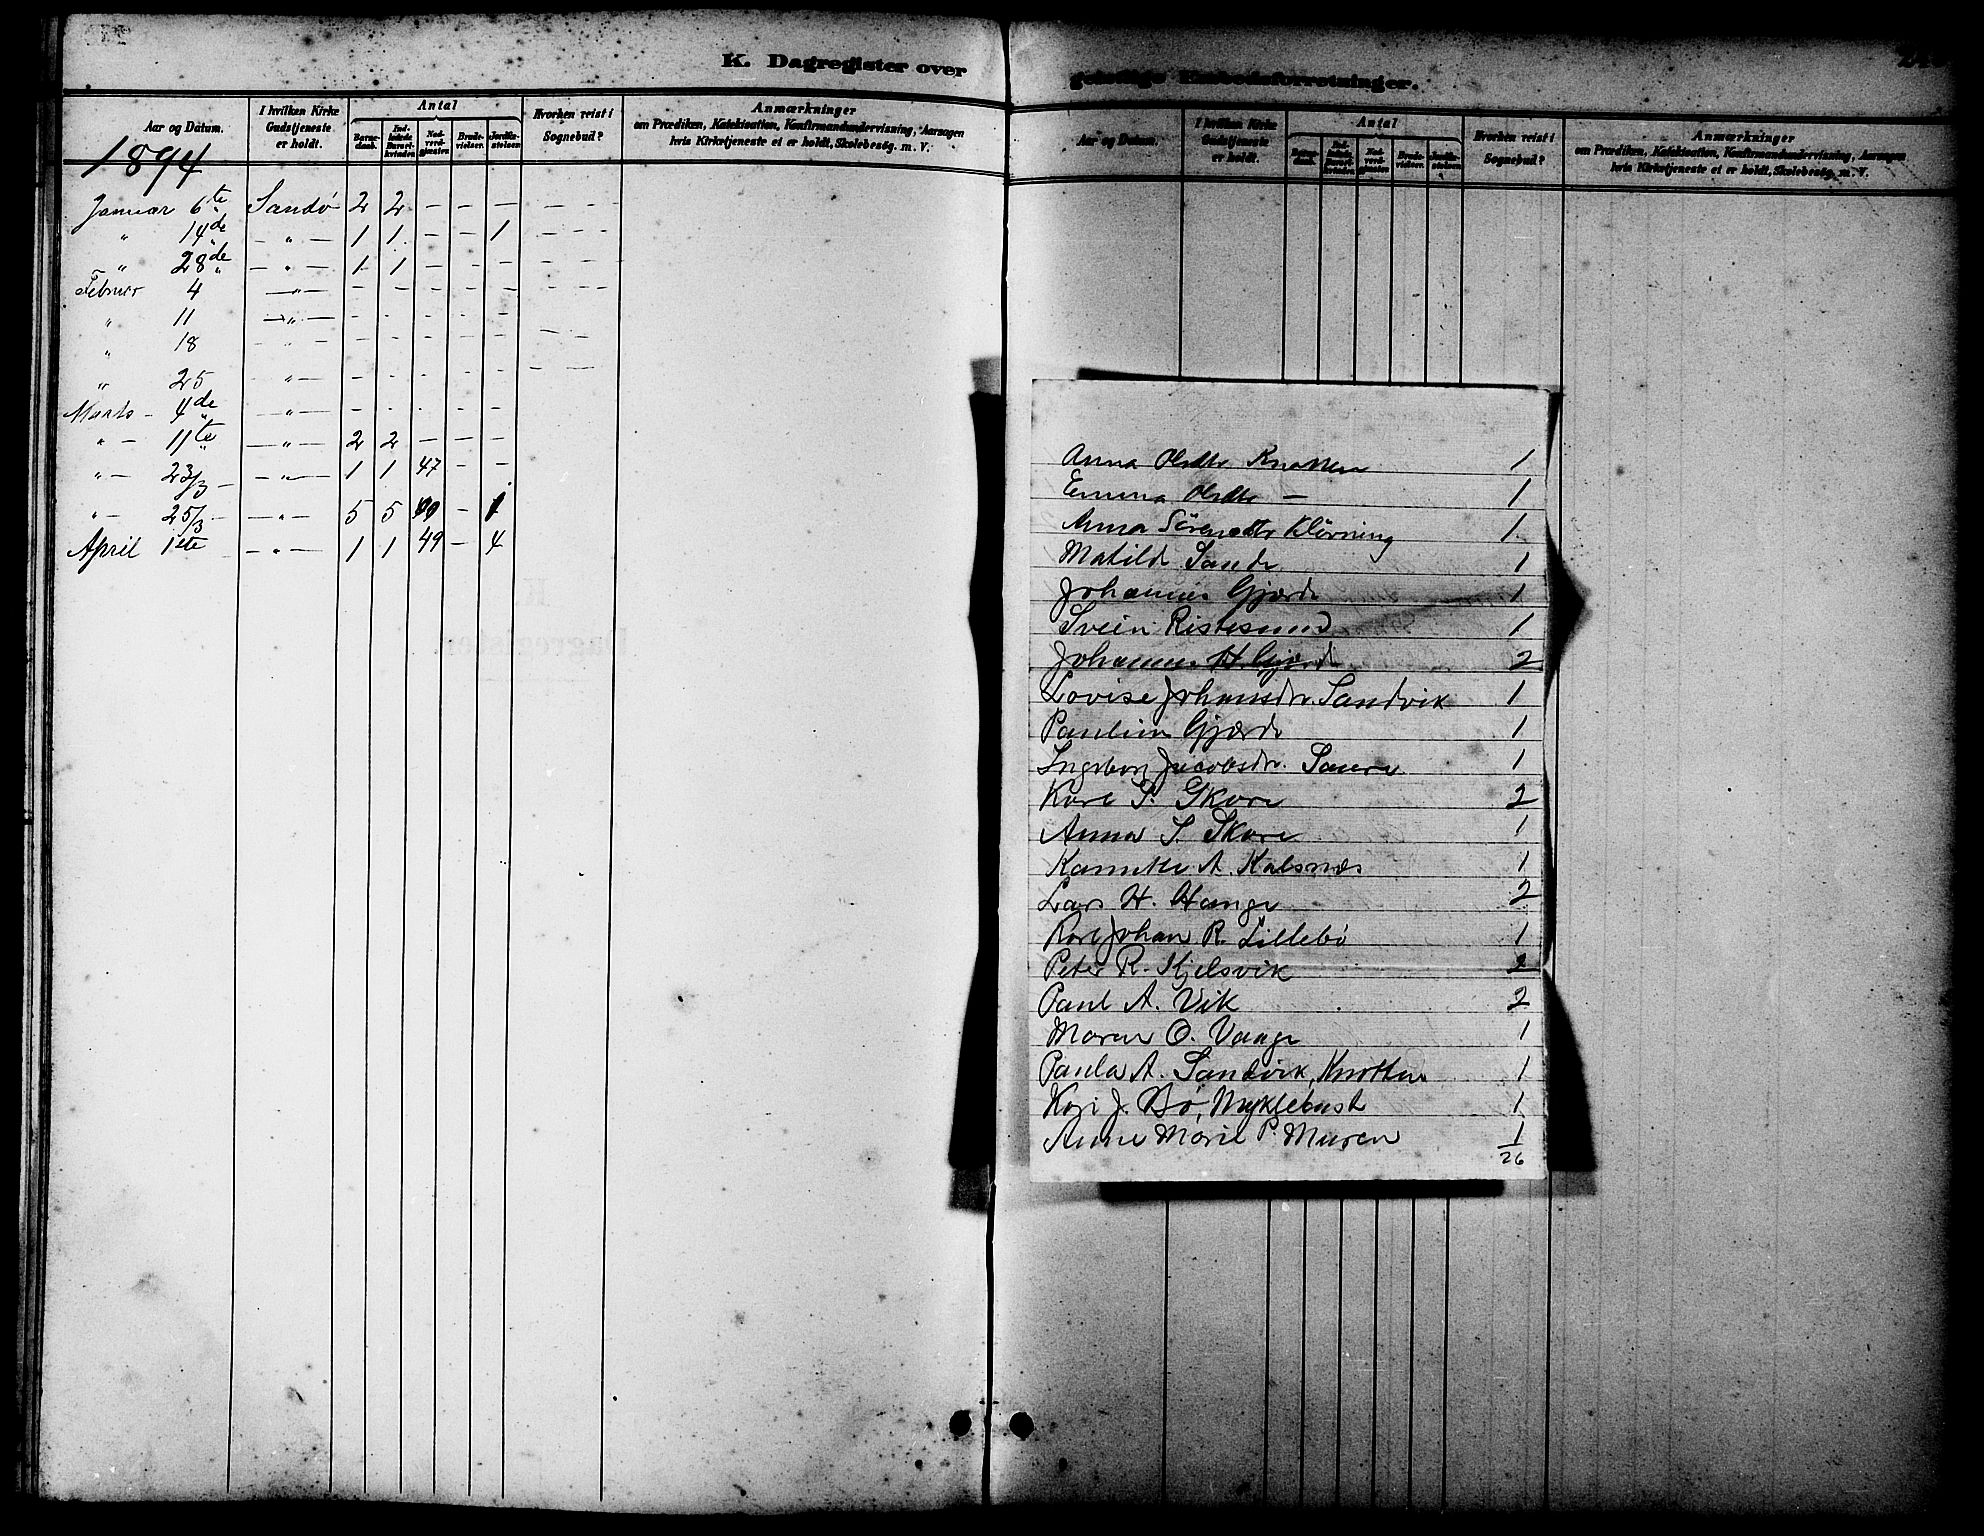 K. Dagregister over
Aar og Datum.
I hvilken Kirke Gudstjeneste er holdt.
Antal
Barnedaab.
Indledede Barselkvinder.
Nadverdgjæster.
Brudevielser.
Jordfæstelser.
Hvorhen reist i Sognebud?
Anmærkninger
om Prædiken, Katekisation, Konfirmandundervisning, Aarsagen
hvis Kirketjeneste ei er holdt, Skolebesøg. m. V.
1894
Januar 6te Sandø 2 2 – – – – – –
" 14de – " – 1 1 – – 1 – – –
" 28de – " – 1 1 – – – – – –
Februar 4 – " – – – – – – – – –
" 11 – " – – – – – –
" 18 – " – – – – – – – –
" 25 – " – – – – – – – –
Marts – 4de – " – – – – – –
" – 11te – " – 2 2 – – –
" – 23/3 – – " – 1 1 47 – –
" – 25/3 – – " – 5 5 – 1
April 1ste – " – 1 1 49 – 4
geistlige Embedsforretninger.
Aar og Datum.
I hvilken Kirke Gudstjeneste er holdt.
Antal
Barnedaab.
Indledede Barselkvinder.
Nadverdgjæster.
Brudevielser.
Jordfæstelser.
Hvorhen reist i Sognebud?
Anmærkninger
om Prædiken, Katekisation, Konfirmandundervisning, Aarsagen
hvis Kirketjeneste ei er holdt, Skolebesøg, m. V.
Anna Olsdtr Knotten 1
Emma Olsdtr – 1
Anna Sörensdtr Klövning 1
Matilde Sande 1
Johannes Gjærde 1
Svein Ristesund 1
Johannes H. Gjærde 2
Lovise Johansdr. Sandvik 1
Pauline Gjærde 1
Ingeborg Jacobsdr. 1
Karl P. Skare 2
Anna S. Skare 1
A. Kalsnæs 1
Lars H. Hauge 2
Karl Johan R. Lillebö 1
Peter R. Kjelsvik 2
Paul A. Vik 2
Maren O. Vaage 1
Paula A. Sandvik, Knotten 1
Kari J. Bö, Myklebust 1
Anne Marie P. Muren 1
26